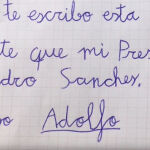 te escribo esta
te que mi Pres
dro Sanches.
o Adolfo